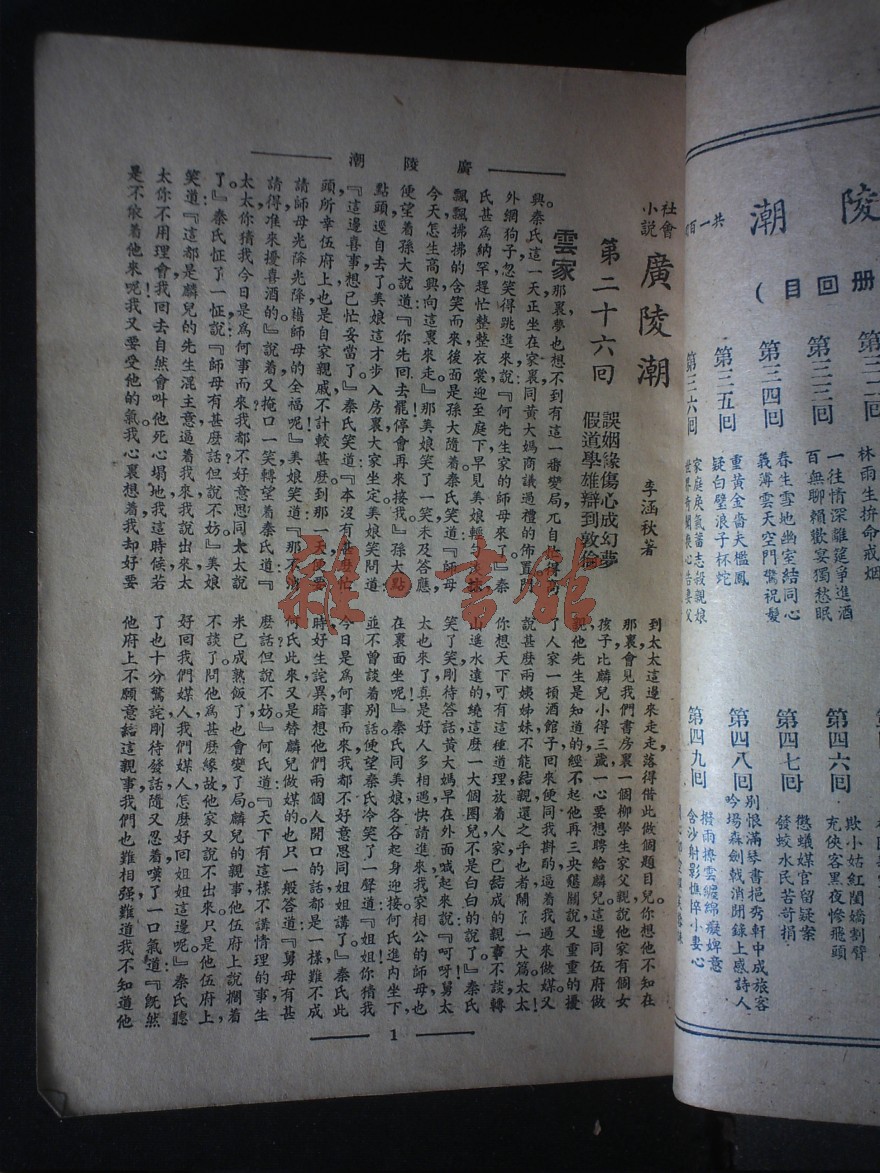 廣陵潮
社會
小說
廣陵潮
李涵秋著
第二十六回
誤姻緣傷心成幻夢
假道學雄辯到敦倫
雲家那裏夢也想不到有這一番變局兀自
興。秦氏這一天正坐在家裏同黃大媽商議過禮的佈置門
外網狗子忽笑得跳進來說『何先生家的師母來了』
氏甚爲納罕趕忙整整衣裳迎至庭下早見美娘輕
飄飄拂拂的含笑而來後面是孫大隨着秦氏笑道『師母
今天怎生高興向這裏來走』那美娘笑了一笑未及答應,
便望着孫大說道『你先回去罷停會再來接我』孫大點
點頭逕自去了美娘這才步入房裏大家坐定美娘笑問道
『這邊喜事想已忙妥當了』秦氏笑道『本沒有甚麼忙
頭所幸伍府上也是自家親戚不計較甚麼到那一天便要
請師母光降光降藉師母的全福呢』美娘笑道『那不消
請得准來擾喜酒的』說着又掩口一笑轉望着秦氏道『
太太你猜我今日是爲何事而來我都不好意思同太太說
了。』秦氏怔了一怔說『師母有甚麼話但說不妨』美娘
笑道『這都是麟兒的先生混主意逼着我來我說出來太
太你不用理會我回去自然會叫他死心塌地我這時候若
是不依着他來呢我又要受他的氣我心裏想着我却好要
到太太這邊來走走落得借此做個題目兒你想他不知在
那裏會見我們書房裏一個柳學生家父親說他家有個女
孩子比麟兒小得三歲一心要想聘給麟兒這邊同伍府做
說他先生是知道的經不起他再三央懇關說又重重的擾
了人家一頓酒館子回來便同我斟酌逼着我過來做媒又
說甚麼兩姨姊妹不能結親還之乎也者鬧了一大篇太太
你想天下可有這種道理放着人家已結成的親事不談轉
山遙水遠的繞這麼一大個圈兒不是白白的說了』秦氏
笑了笑剛待答話黃大媽早在外面喊起來說『呵呀舅太
太也來了真是好人多相遇快請進來我家相公的師母也
在裏面坐呢』秦氏同美娘各各起身迎接何氏進內坐下,
並不曾談着別話便望秦氏冷笑了一聲道『姐姐你猜我
今日是爲何事而來我都不好意思同姐姐講了』秦氏此
時好生詫異暗想他們兩個人開口的話都是一樣難不成
何氏此來又是替麟兒做媒的也只一般答道『舅母有甚
麼話但說不妨』何氏道『天下有這樣不講情理的事生
米已成熟飯了也會變了局麟兒的親事他伍府上說擱着
不談了問他爲甚麼緣故他家又說不出來只是他伍府上,
好回我們媒人我們媒人怎麼好回姐姐這邊呢』秦氏聽
了也十分驚詫剛待發話隨又忍着嘆了一口氣道『既然
他府上不願意結這親事我們也難相强難道我不知道他
1
雜·書館
陵
潮
共一百
册回目)
林雨生拚命戒烟
第三三回
一往情深離筵爭進酒
百無聊賴歡宴獨愁眠
第三四回
春生雪地幽室結同心
義薄雲天空門驚祝髮
第三五回
重黃金香夭檻鳳
疑白璧浪子杯蛇
第三六回
家庭戾氣蓄志殺親娘
第四六回
欺小姑紅閨嬌割臂
充俠客黑夜慘飛頭
第四七回
懲蟻媒官留疑案
發蛟水民苦苛捐
第四八回
別恨滿琴書挹秀軒中成旅客
吟場森劍戟消閒錄上感詩人
第四九回
撥雨撩雲纏綿癡婢意
含沙射影憔悴小妻心